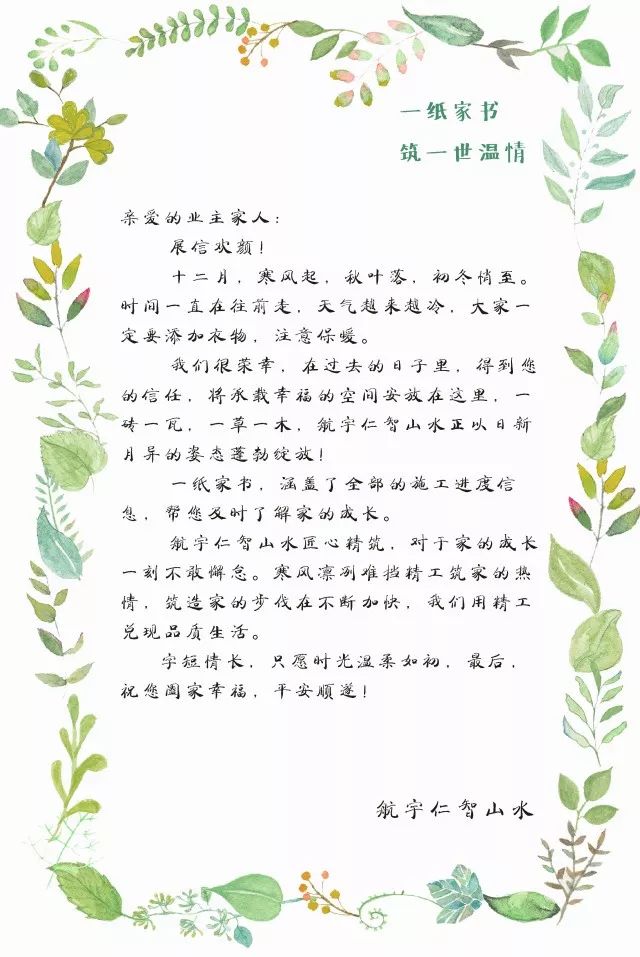 一纸家书
筑一世温情
亲爱的业主家人：
展信欢颜！
十二月，寒风起，秋叶落，初冬悄至。
时间一直在往前走，天气越来越冷，大家一
定要添加衣物，注意保暖。
我们很荣幸，在过去的日子里，得到您
的信任，将承载幸福的空间安放在这里，一
砖一瓦，一草一木，航宇仁智山水正以日新
月异的姿态蓬勃绽放！
一纸家书，涵盖了全部的施工进度信
息，帮您及时了解家的成长。
航宇仁智山水匠心精筑，对于家的成长
一刻不敢懈怠。寒风凛冽难挡精工筑家的热
情，筑造家的步伐在不断加快，我们用精工
兑现品质生活。
字短情长，只愿时光温柔如初，最后，
祝您阖家幸福，平安顺遂！
航宇仁智山水